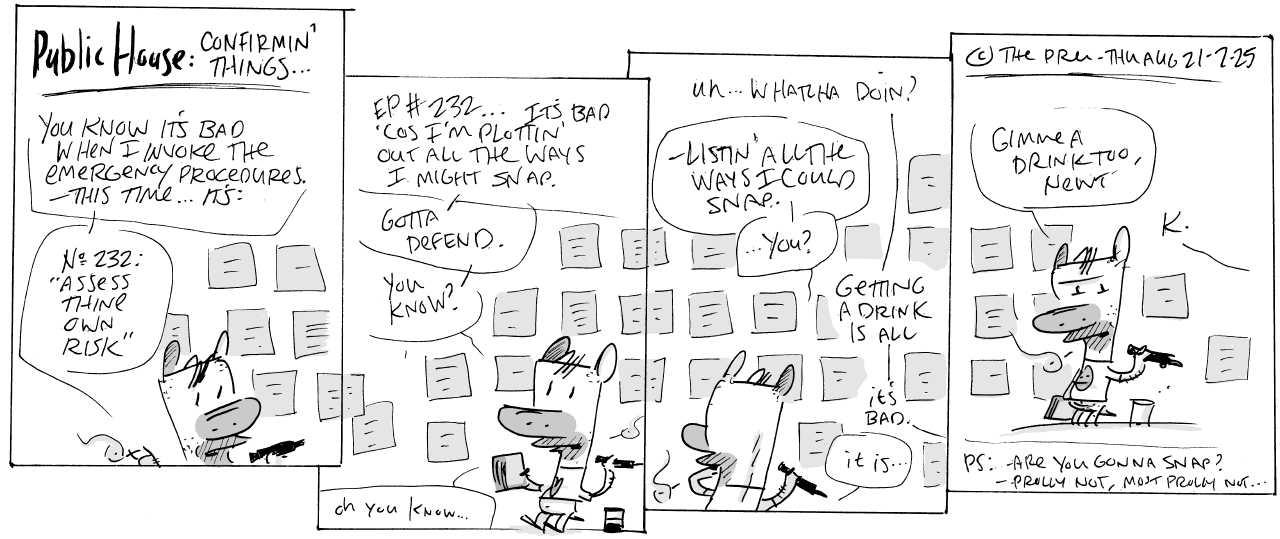 Public House: CONFIRMIN'
THINGS...
YOU KNOW IT'S BAD
WHEN I INVOKE THE
EMERGENCY PROCEDURES.
—THIS TIME... IT'S:
Nº 232:
"ASSESS
THINE
OWN
RISK"
EP # 232... IT'S BAD
'COS I'M PLOTTIN'
OUT ALL THE WAYS
I MIGHT SNAP.
GOTTA
DEFEND.
YOU
KNOW?
oh you know...
uh... WHATCHA DOIN?
—LISTIN' ALL THE
WAYS I COULD
SNAP.
...YOU?
GETTING
A DRINK
IS ALL
it's
BAD.
it is...
© THE PRU - THU AUG 21-2.25
GIMME A
DRINK TOO,
NEWT
K.
PS: -ARE YOU GONNA SNAP?
- PROLLY NOT, MOST PROLLY NOT...